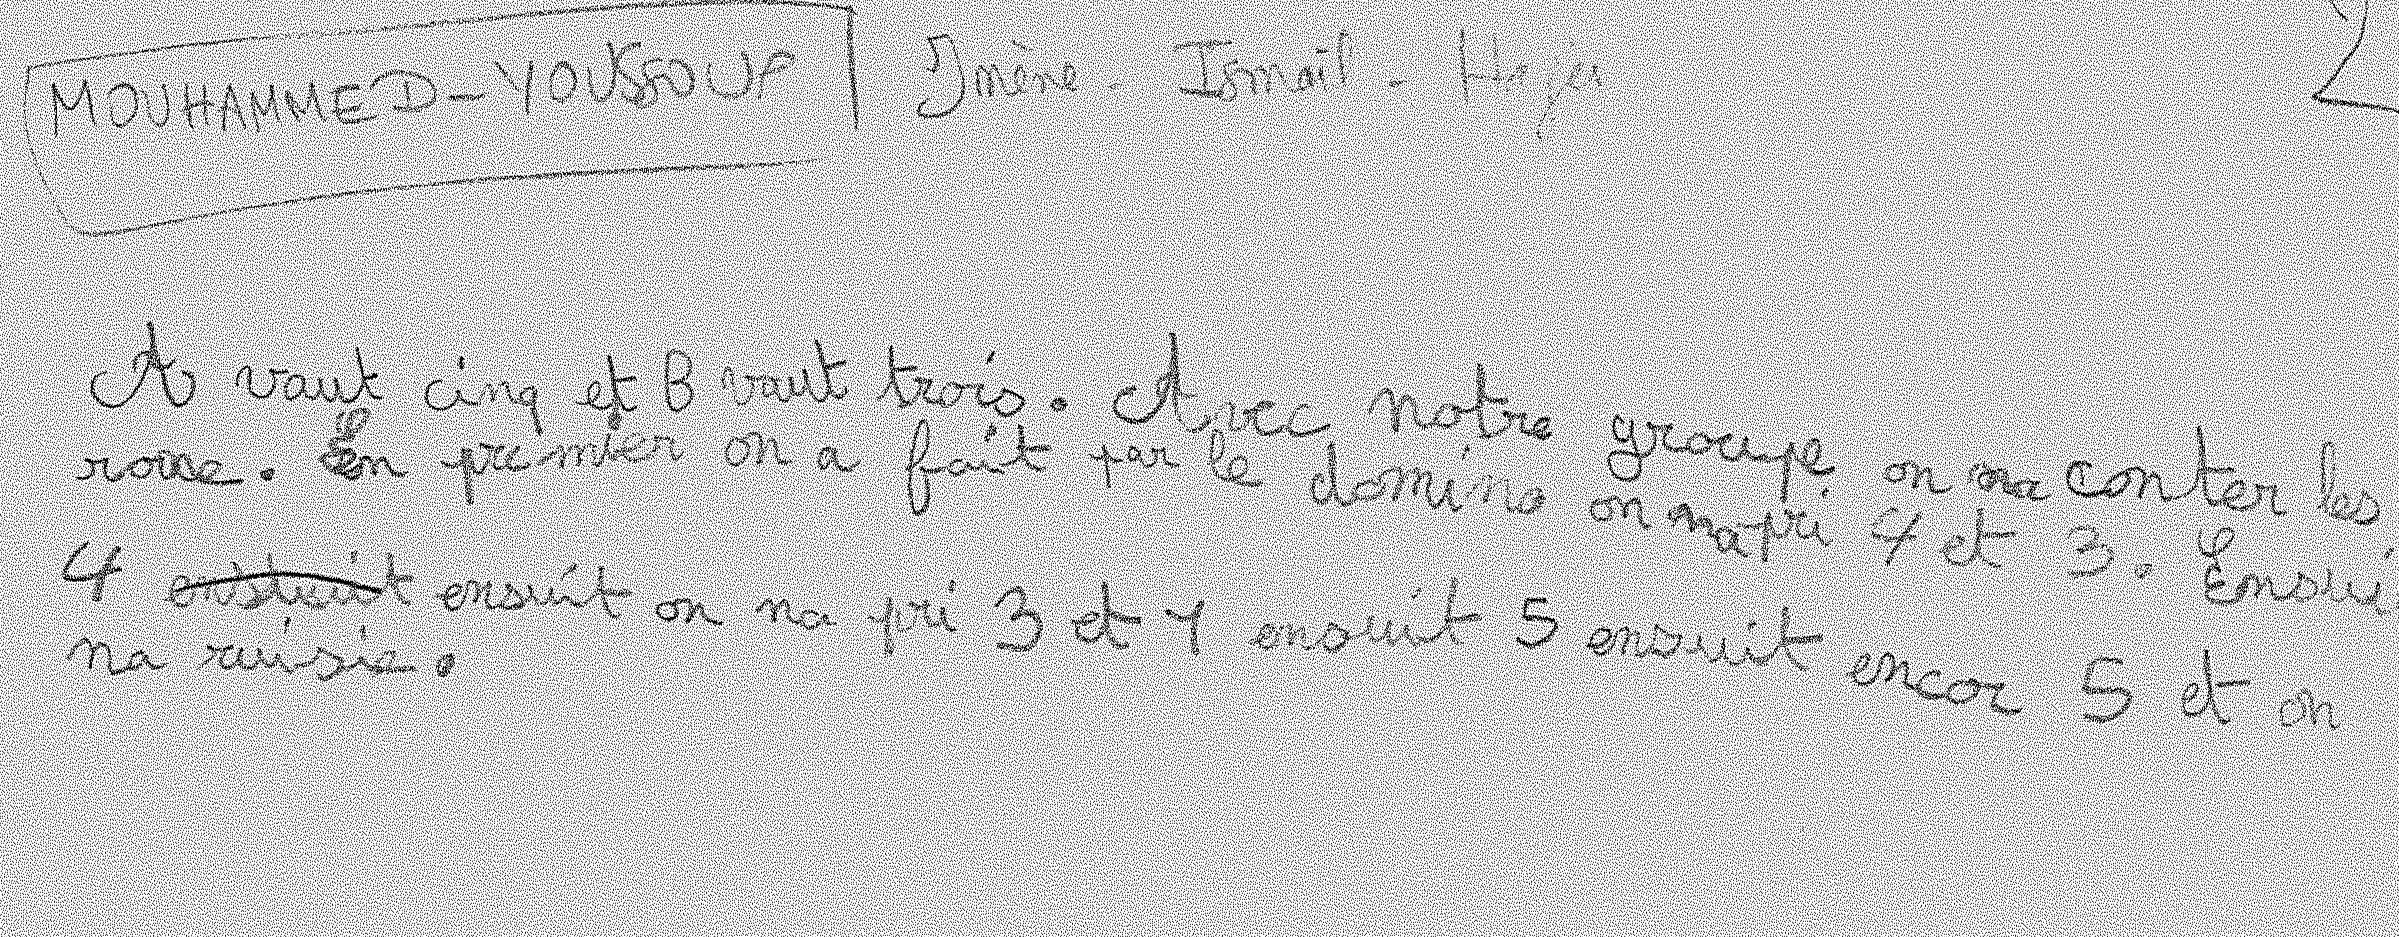 MOUHAMMED-YOUSSOUF Imène - Ismaïl - Hajer
A vaut cinq et B vaut trois. Avec notre groupe on na conter les
roue. En premier on a fait par le domino on na pri 4 et 3. Ensui
4 ensuit on na pri 3 et 4 ensuit 5 ensuit encor 5 et on
na réusie.